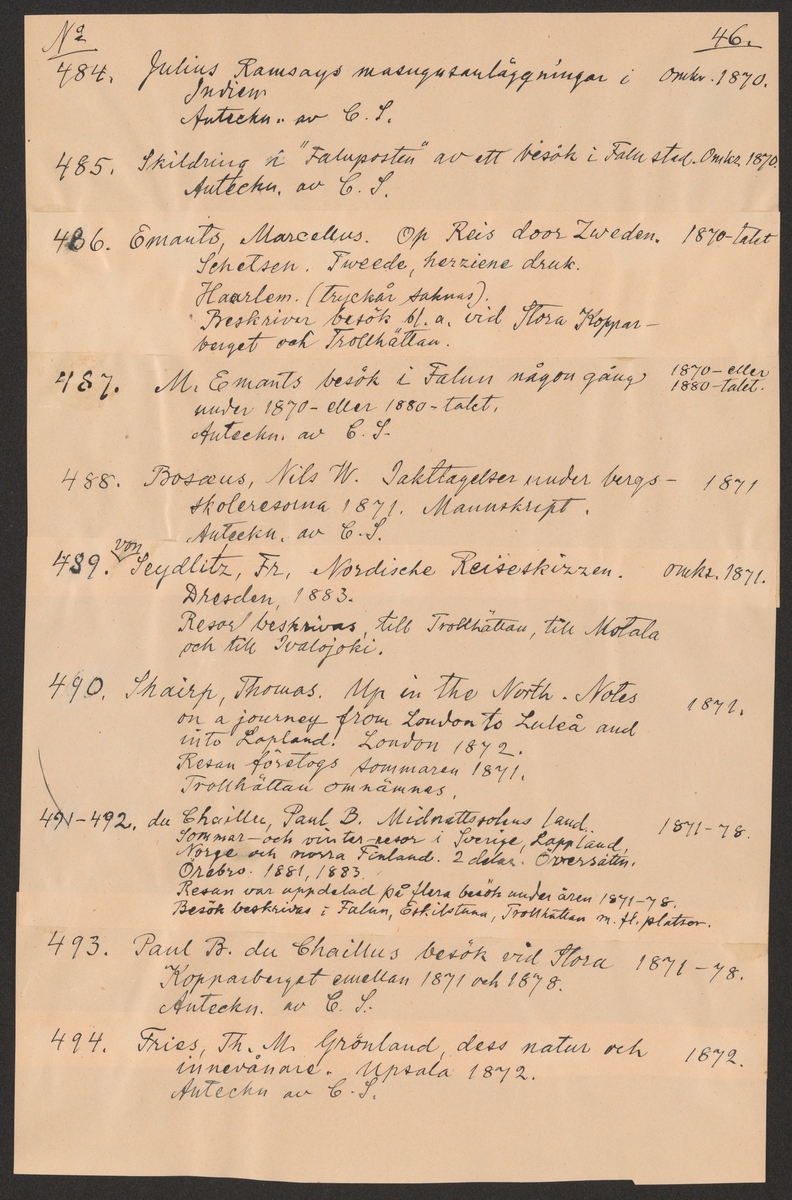 No 46.
484. Julius Ramsays masugnsanläggningar i Omkr. 1870.
Indien
Anteckn. av C. S.
485. Skildring i "Faluposten" av ett besök i Falu stad. Omkr. 1870.
Anteckn. av C. S.
486. Emants, Marcellus. Op Reis door Zweden. 1870-talet
Schetsen. Tweede, herziene druk.
Haarlem. (tryckår saknas).
Beskriver besök bl. a. vid Stora Koppar-
berget och Trollhättan.
487. M. Emants besök i Falun någon gång 1870- eller
1880-talet.
under 1870- eller 1880-talet.
Anteckn. av C. S.
488. Bosæus, Nils W. Iakttagelser under bergs- 1871
skoleresorna 1871. Manuskript.
Anteckn. av C. S.
489. von Seydlitz, Fr, Nordische Reiseskizzen. omkr. 1871.
Dresden, 1883.
Resor beskrivas, till Trollhättan, till Motala
och till Ivalojoki.
490. Shairp, Thomas. Up in the North. Notes 1871.
on a journey from London to Luleå and
into Lapland. London 1872.
Resan företogs sommaren 1871.
Trollhättan omnämnas.
491-492. du Chaillu, Paul B. Midnattssolens land. 1871-78.
Sommar- och vinter-resor i Sverige, Lappland,
Norge och norra Finland. 2 delar. Översättn.
Örebro. 1881, 1883.
Resan var uppdelad på flera besök under åren 1871-78.
Besök beskrivas i Falun, Eskilstuna, Trollhättan m. fl. platser.
493. Paul B. du Chaillus besök vid Stora 1871-78.
Kopparberget emellan 1871 och 1878.
Anteckn. av C. S.
494. Fries, Th. M. Grönland, dess natur och 1872.
innevånare. Upsala 1872.
Anteckn av C. S.